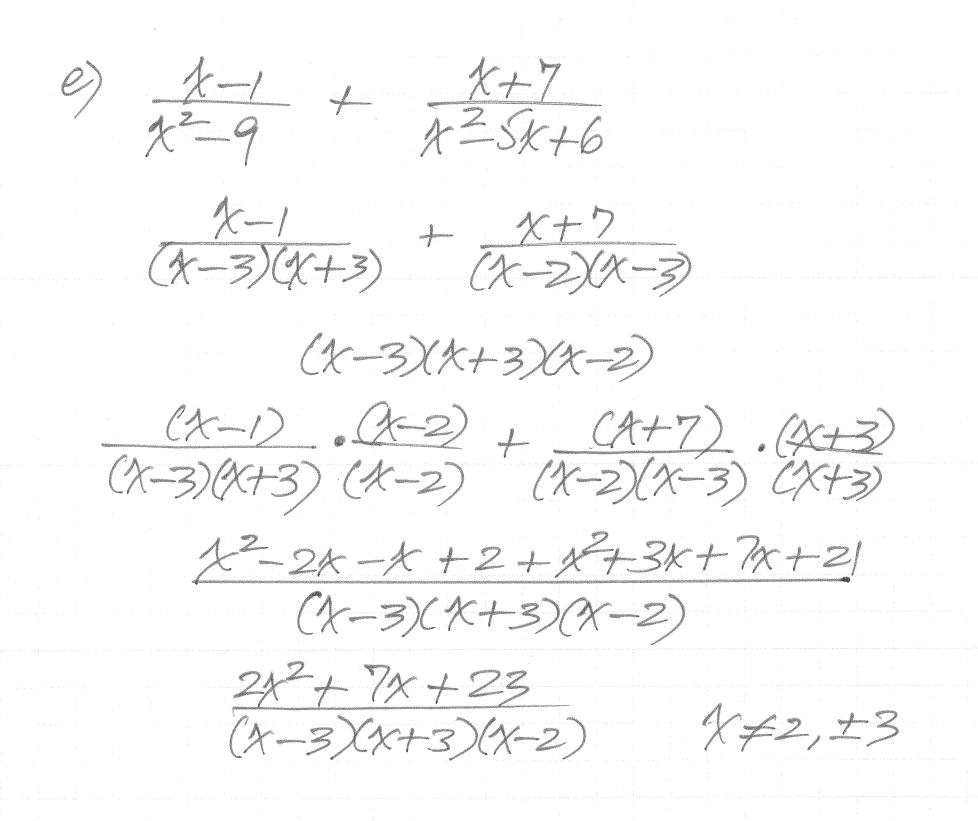 e) (x-1)/(x²-9) + (x+7)/(x²-5x+6)
(x-1)/((x-3)(x+3)) + (x+7)/((x-2)(x-3))
(x-3)(x+3)(x-2)
(x-1)/((x-3)(x+3)) · (x-2)/(x-2) + (x+7)/((x-2)(x-3)) · (x+3)/(x+3)
(x²-2x-x+2+x²+3x+7x+21)/((x-3)(x+3)(x-2))
(2x²+7x+23)/((x-3)(x+3)(x-2)) x≠2, ±3